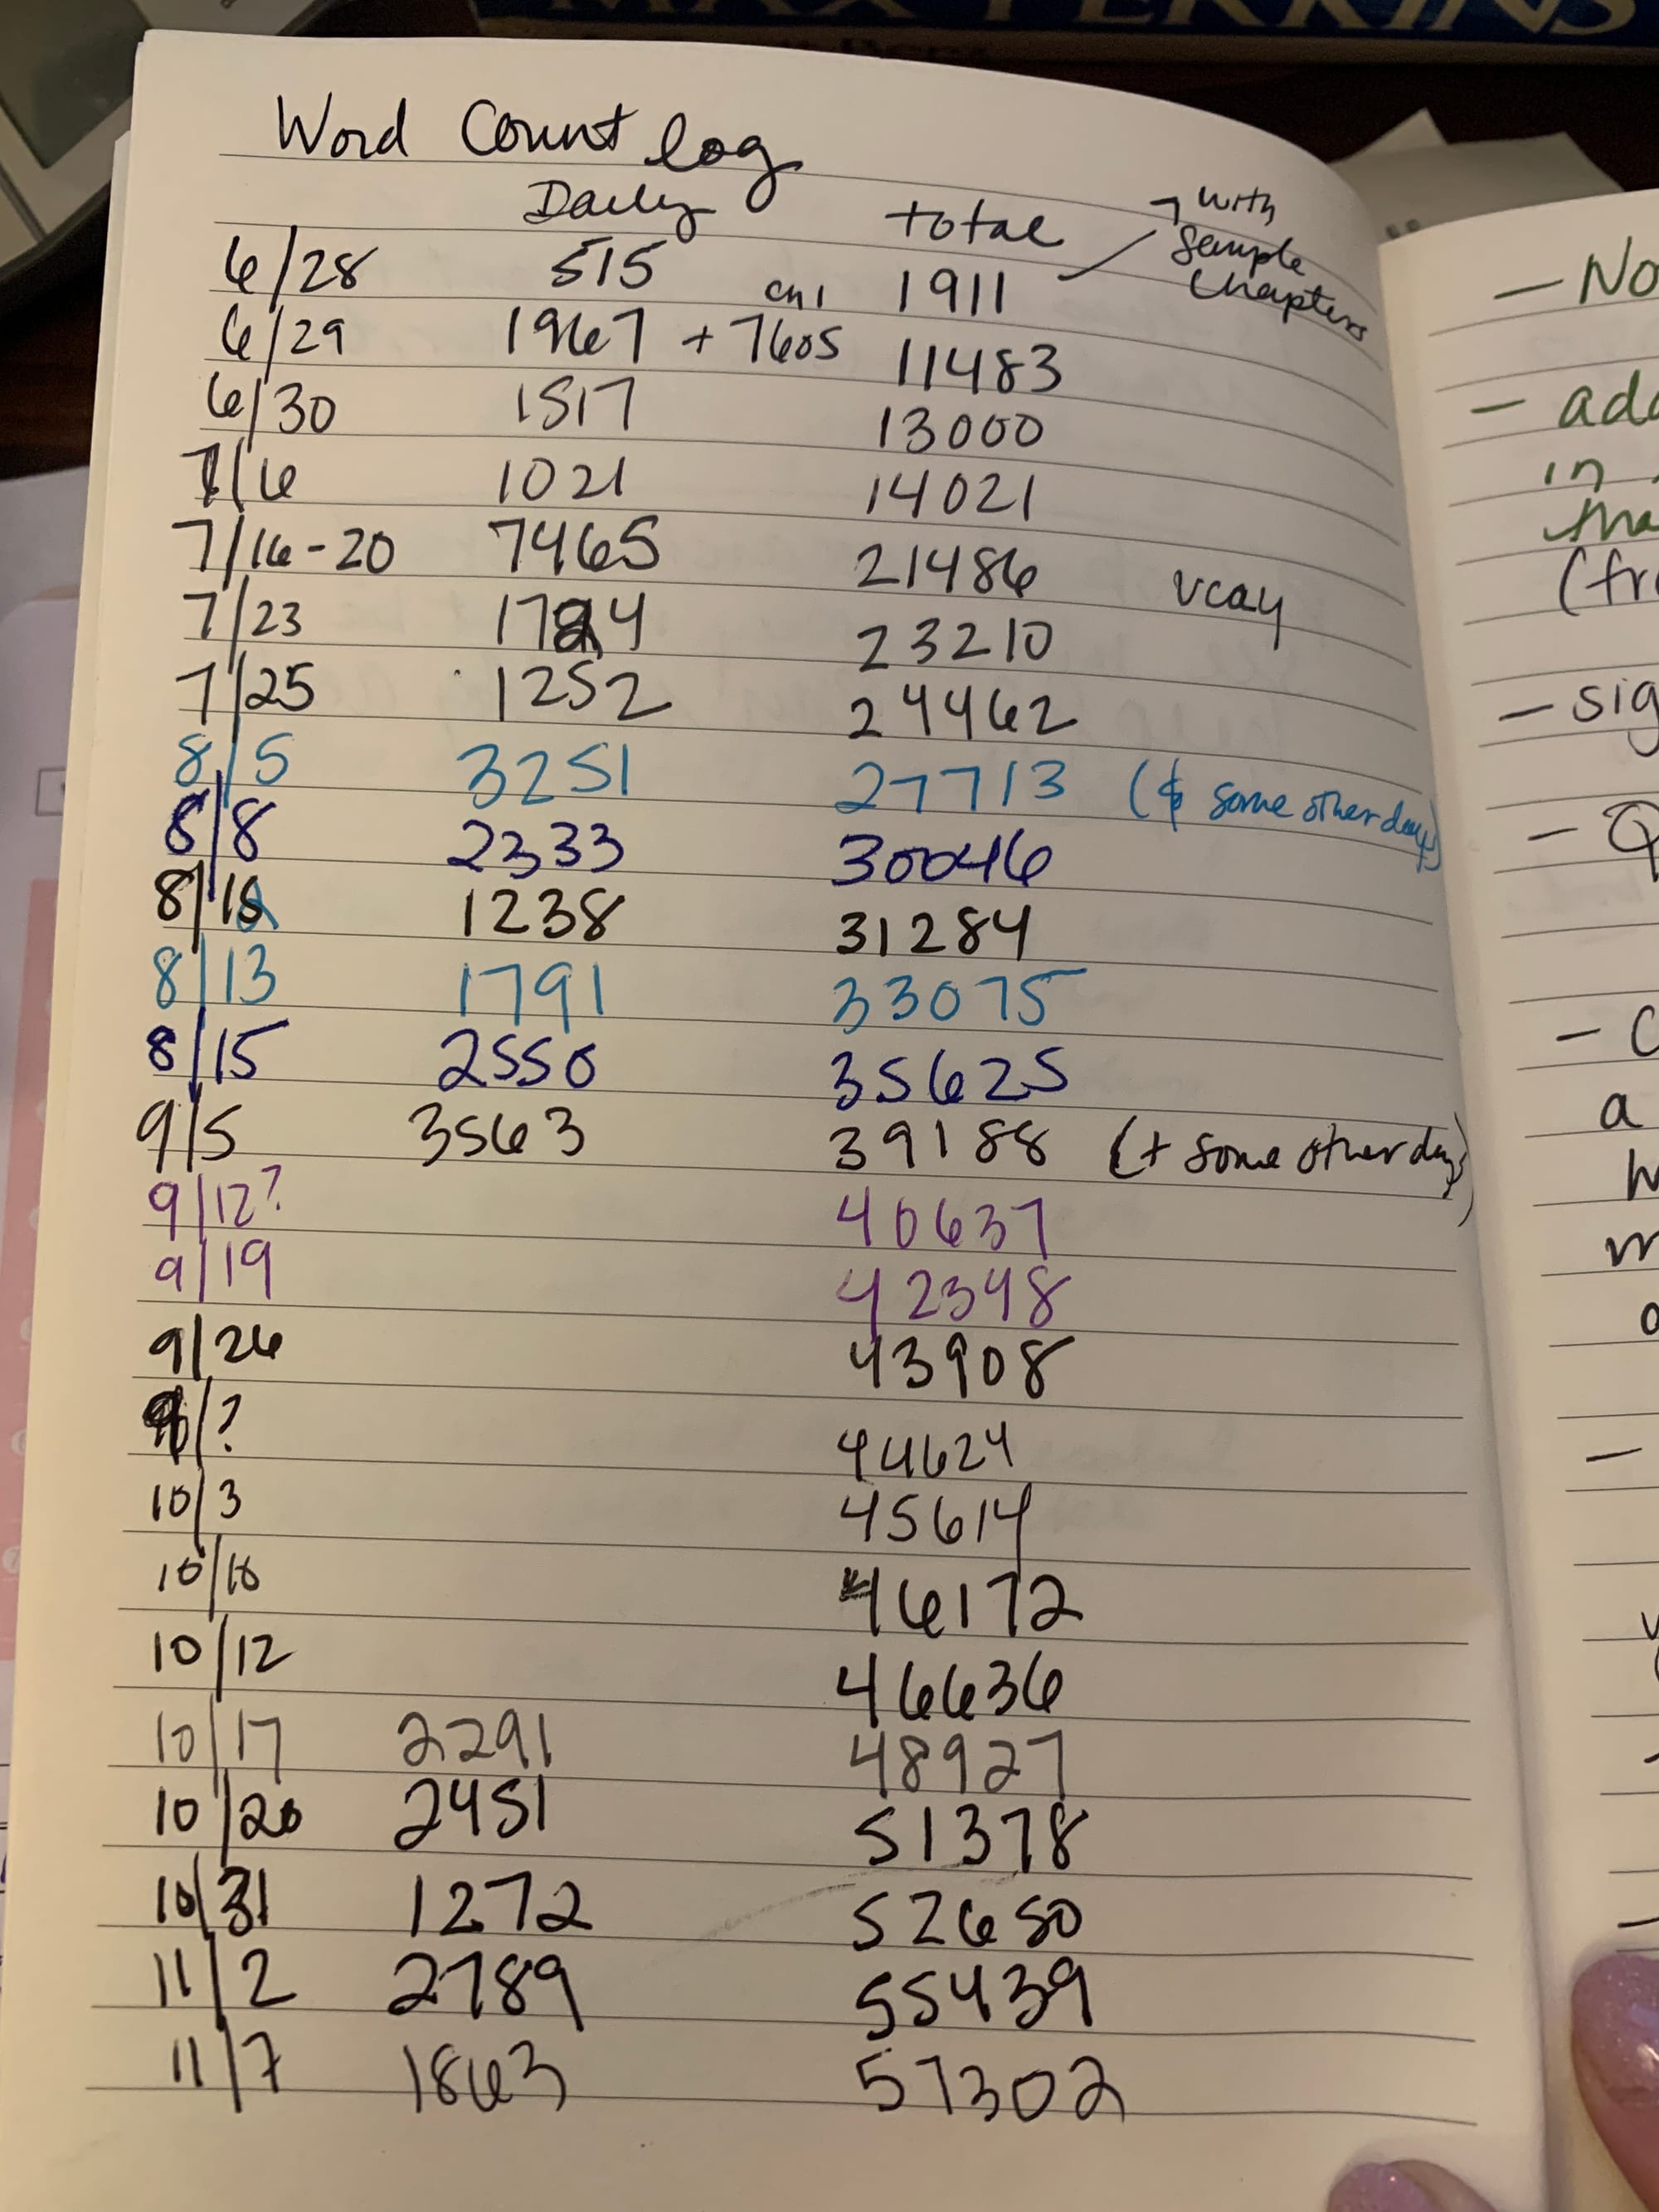 MAX PERKINS
Word Count log
Daily total → with sample chapters
6/28 515 1911
6/29 1967 + ch 1 7605 11483
6/30 1517 13000
7/6 1021 14021
7/16-20 7465 21486 vcay
7/23 1724 23210
7/25 1252 24462
8/5 3251 27713 (& some other days)
8/8 2333 30046
8/ 1238 31284
8/13 1791 33075
8/15 2550 35625
9/5 3563 39188 (+ some other days)
9/12? 40637
9/19 42398
9/26 43908
9/? 44624
10/3 45614
10/10 46172
10/12 46636
10/17 2291 48927
10/20 2451 51378
10/31 1272 52650
11/2 2789 55439
11/7 1863 57302
- No
- add
in
(fr
- sig
- Q
- C
a